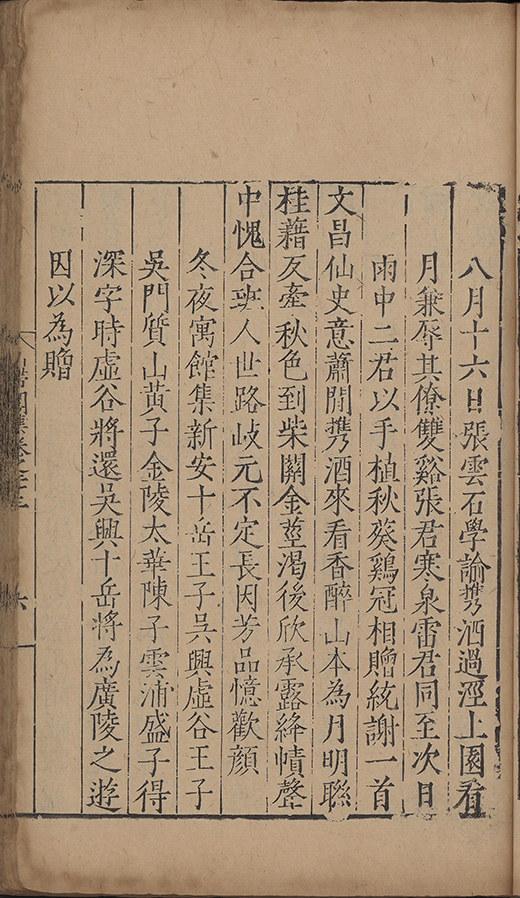 八月十六日張雲石學諭携酒過涇上園看
月兼辱其僚雙谿張君寒泉雷君同至次日
雨中二君以手植秋葵鷄冠相贈統謝一首
文昌仙史意蕭閒携酒來看香醉山本為月明聯
桂藉反牽秋色到柴關金莖渴後欣承露絳幘聲
中愧合班人世路歧元不定長因芳品憶歡顔
冬夜寓館集新安十岳王子吳興虛谷王子
吳門質山黃子金陵太華陳子雲浦盛子得
深字時虛谷將還吳興十岳將為廣陵之遊
因以為贈